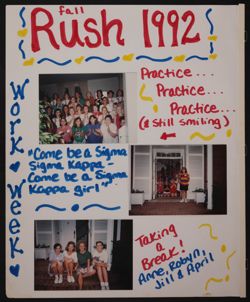 fall
Rush 1992
Work Week
Practice...
Practice...
Practice...
(& still smiling)
"Come be a Sigma
Sigma Kappa
Come be a Sigma
Kappa girl"...
Taking a
Break!
Anne, Robyn,
Jill & April